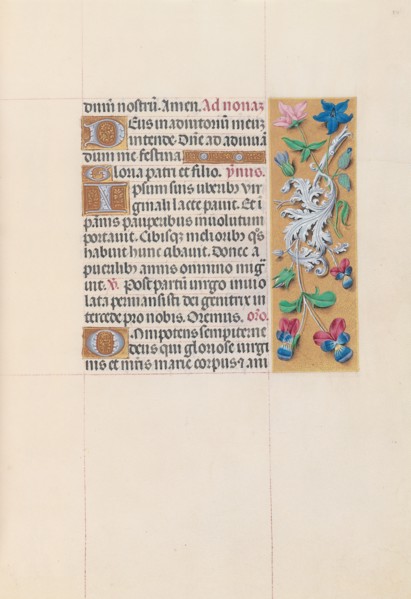 dum nostrū. Amen. Ad nonaz
Deus in adiutoriū meū
intende. Dñe ad adiuuā
dum me festina.
Gloria patri et filio. ỹnus.
Ipsum suis uberibus vir
ginali lacte pauit. Et i
panis pauperibus inuolutum
portauit. Cibisqz melioribus
habuit hunc cibauit. Donec a
puerilibz annis omnino mig
uit. ℣. Post partū virgo inuio
lata permansisti dei genitrix in
tercede pro nobis. Oremus. oro.
Omnipotens sempiterne
deus qui gloriose virgi
nis et mris marie corpus et ani